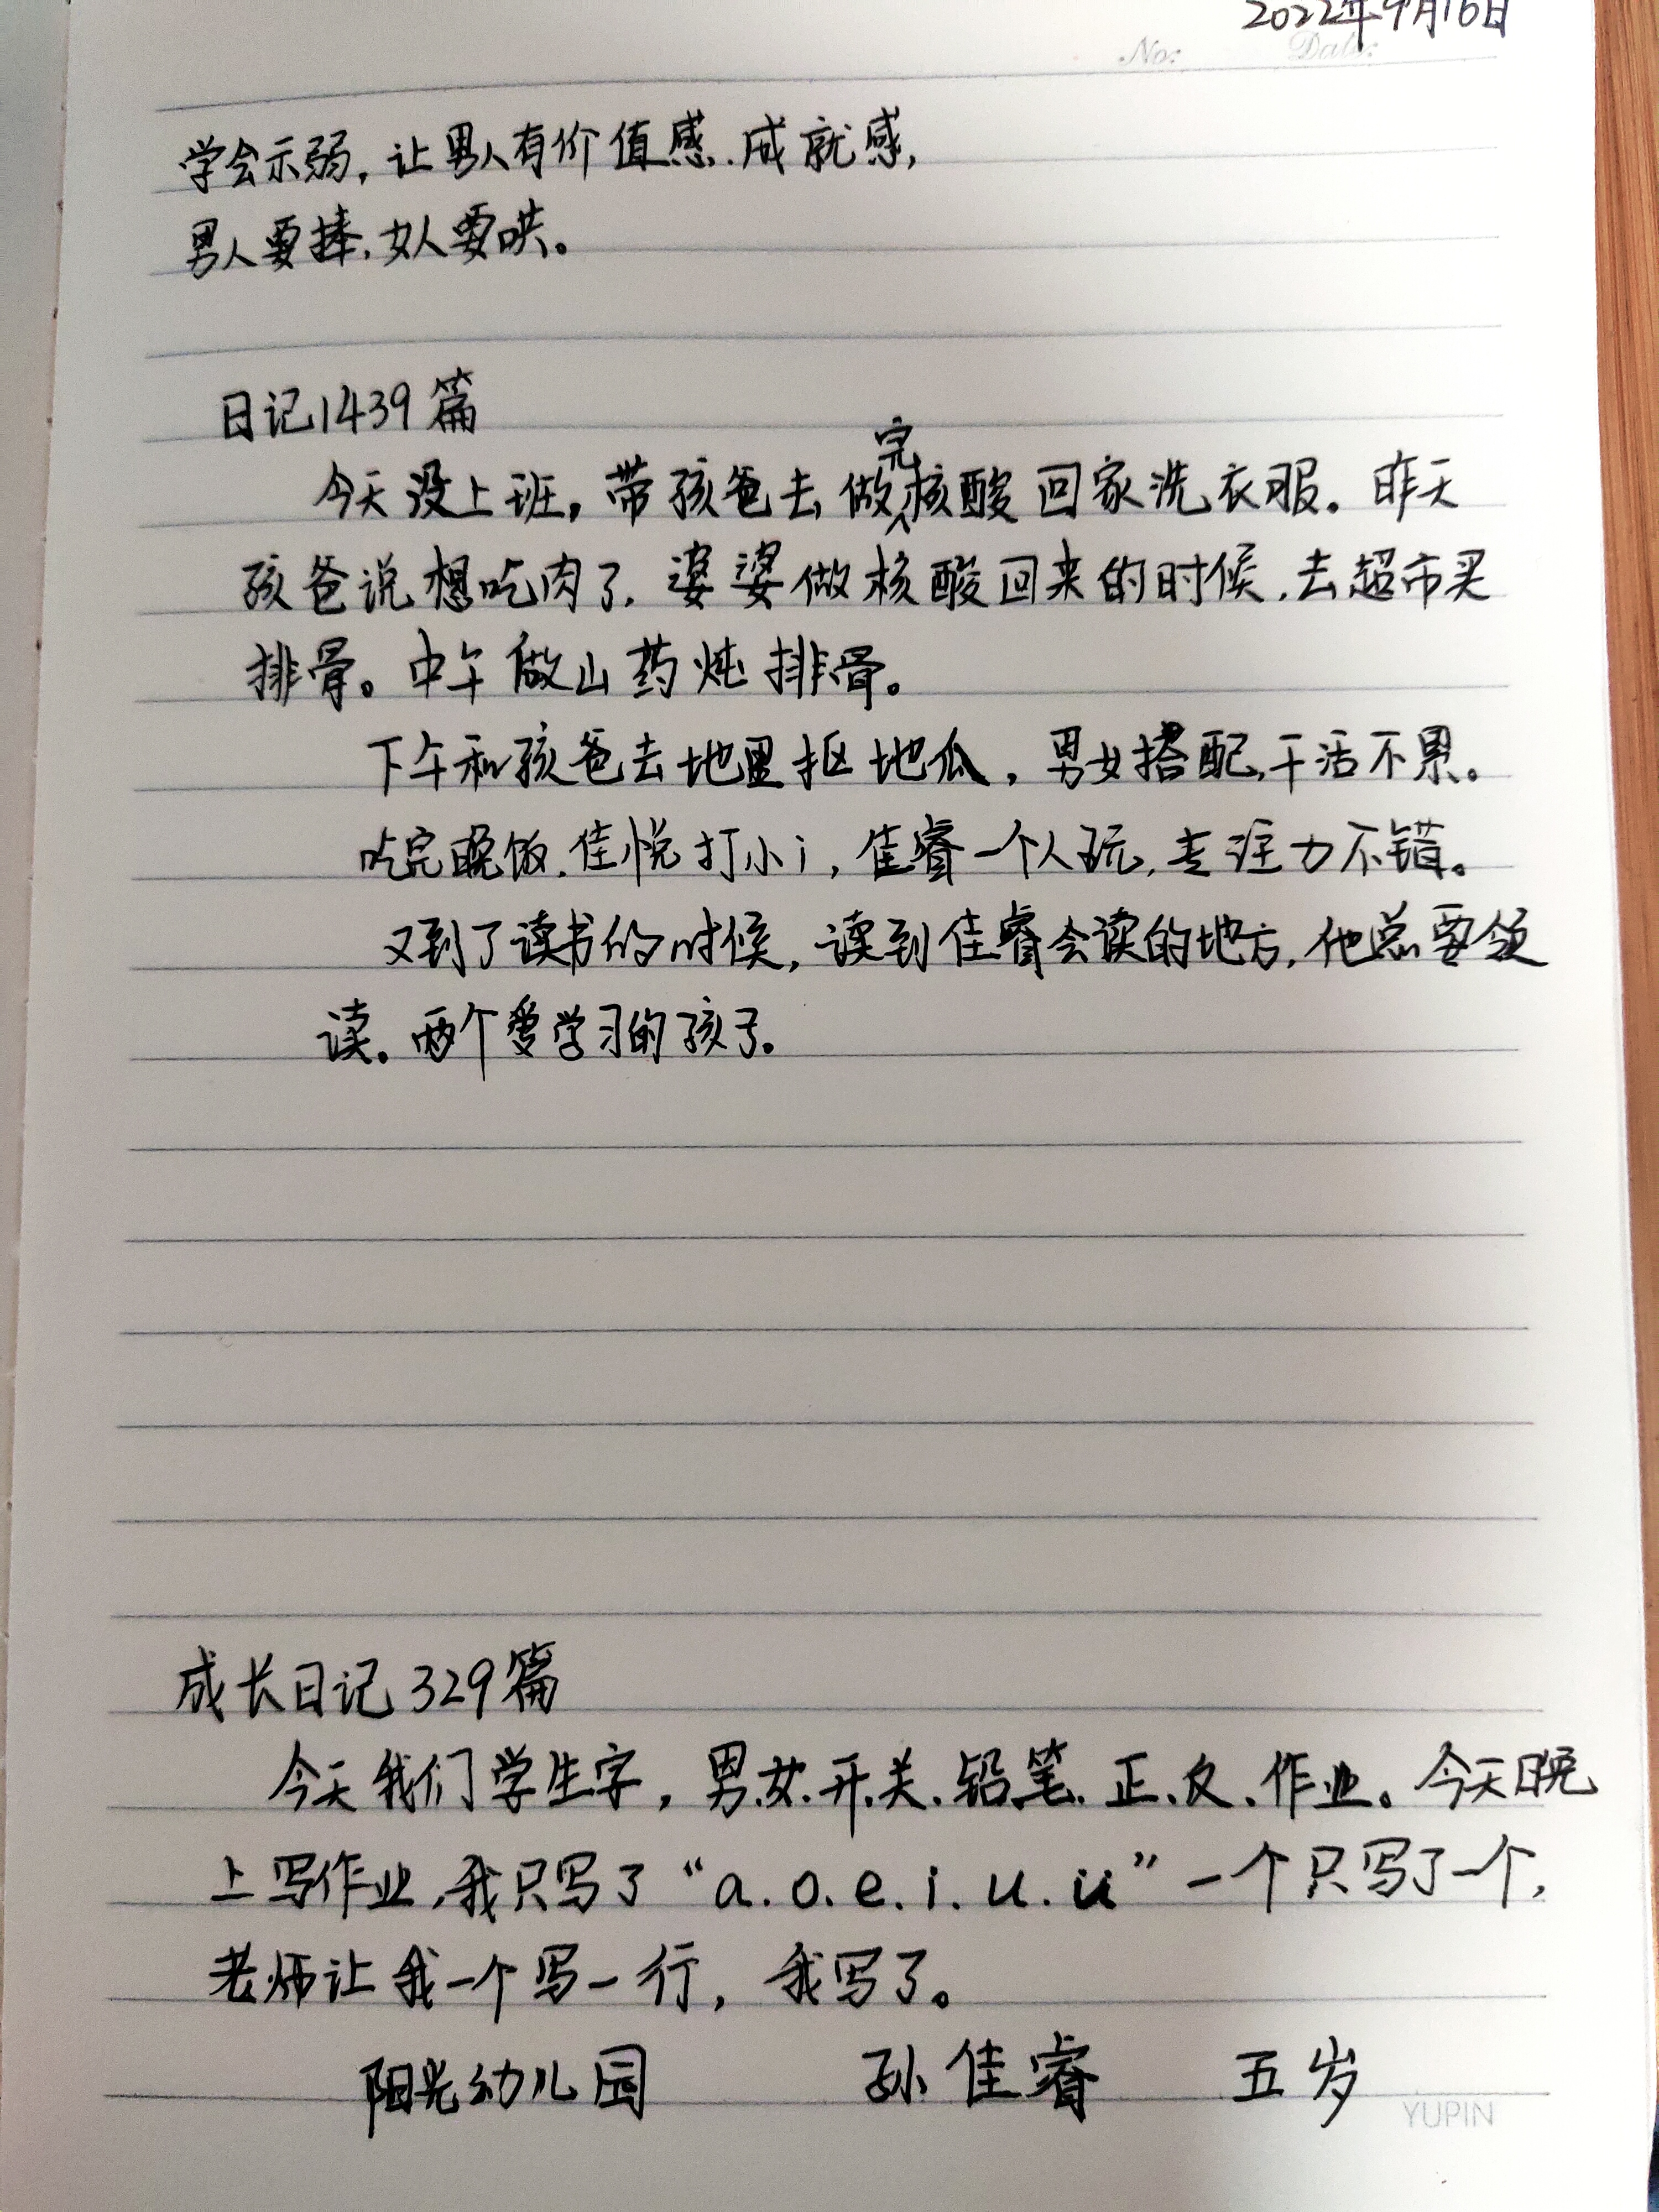 2022年9月16日
No: Date:
学会示弱，让男人有价值感.成就感，
男人要捧，女人要哄。
日记1439篇
今天没上班，带孩爸去做完核酸回家洗衣服。昨天
孩爸说想吃肉了，婆婆做核酸回来的时候，去超市买
排骨。中午做山药炖排骨。
下午和孩爸去地里抠地瓜，男女搭配，干活不累。
吃完晚饭，佳悦打小i，佳睿一个人玩，专注力不错。
又到了读书的时候，读到佳睿会读的地方，他总要领
读。两个爱学习的孩子。
成长日记329篇
今天我们学生字，男.女.开.关.铅笔.正.反.作业。今天晚
上写作业，我只写了“a.o.e.i.u.ü”一个只写了一个，
老师让我一个写一行，我写了。
阳光幼儿园 孙佳睿 五岁
YUPIN